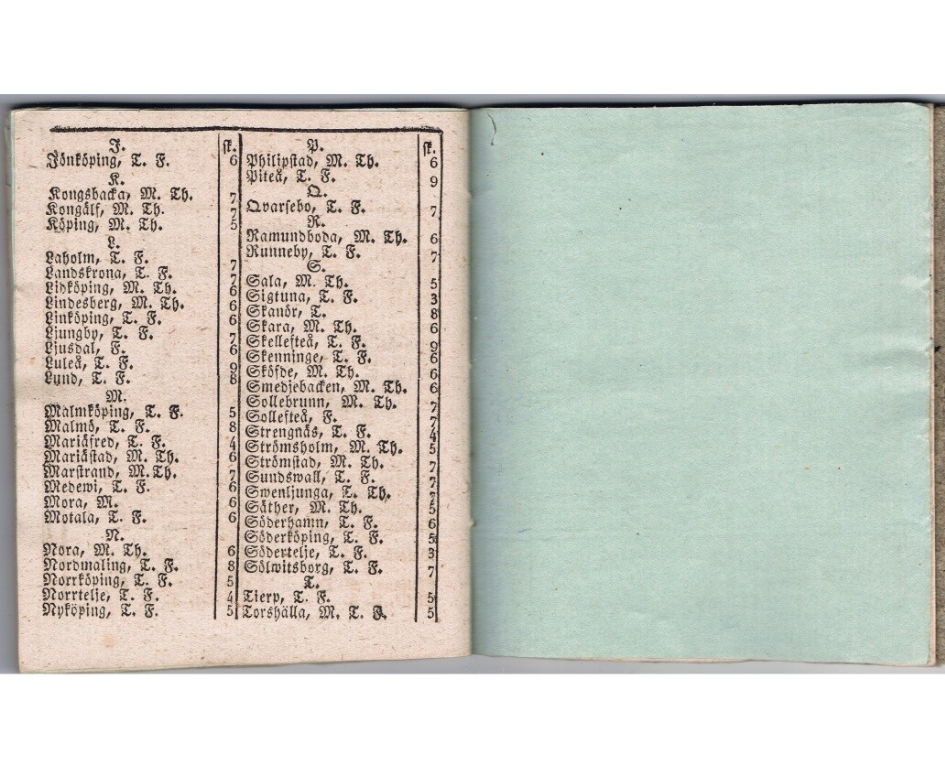 J. sk.
Jönköping, T. F. 6
K.
Kongsbacka, M. Th. 7
Kongälf, M. Th. 7
Köping, M. Th. 5
L.
Laholm, T. F. 7
Landskrona, T. F. 7
Lidköping, M. Th. 6
Lindesberg, M. Th. 6
Linköping, T. F. 6
Ljungby, T. F. 7
Ljusdal, F. 6
Luleå, T. F. 9
Lund, T. F. 8
M.
Malmköping, T. F. 5
Malmö, T. F. 8
Mariäfred, T. F. 4
Mariästad, M. Th. 6
Marstrand, M. Th. 7
Medewi, T. F. 6
Mora, M. 6
Motala, T. F. 6
N.
Nora, M. Th. 6
Nordmaling, T. F. 8
Norrköping, T. F. 5
Norrtelje, T. F. 4
Nyköping, T. F. 5
P. sk.
Philipstad, M. Th. 6
Piteå, T. F. 9
Q.
Qvarsebo, T. F. 7
R.
Ramundboda, M. Th. 6
Runneby, T. F. 7
S.
Sala, M. Th. 5
Sigtuna, T. F. 3
Skanör, T. 8
Skara, M. Th. 6
Skellefteå, T. F. 9
Skenninge, T. F. 6
Sköfde, M. Th. 6
Smedjebacken, M. Th. 6
Sollebrunn, M. Th. 7
Sollefteå, F. 7
Strengnäs, T. F. 4
Strömsholm, M. Th. 5
Strömstad, M. Th. 7
Sundswall, T. F. 7
Swenljunga, T. Th. 7
Säther, M. Th. 5
Söderhamn, T. F. 6
Söderköping, T. F. 5
Södertelje, T. F. 3
Sölwitsborg, T. F. 7
T.
Tierp, T. F. 5
Torshälla, M. T. F. 5